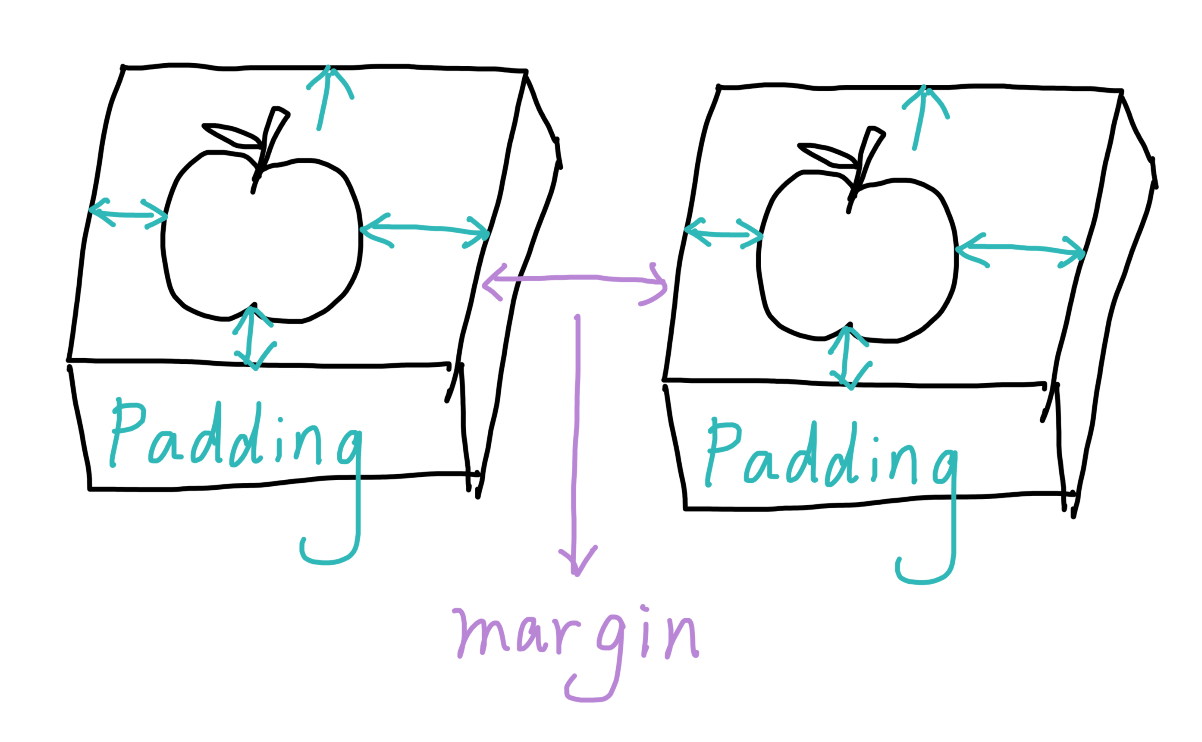 Padding
Padding
margin